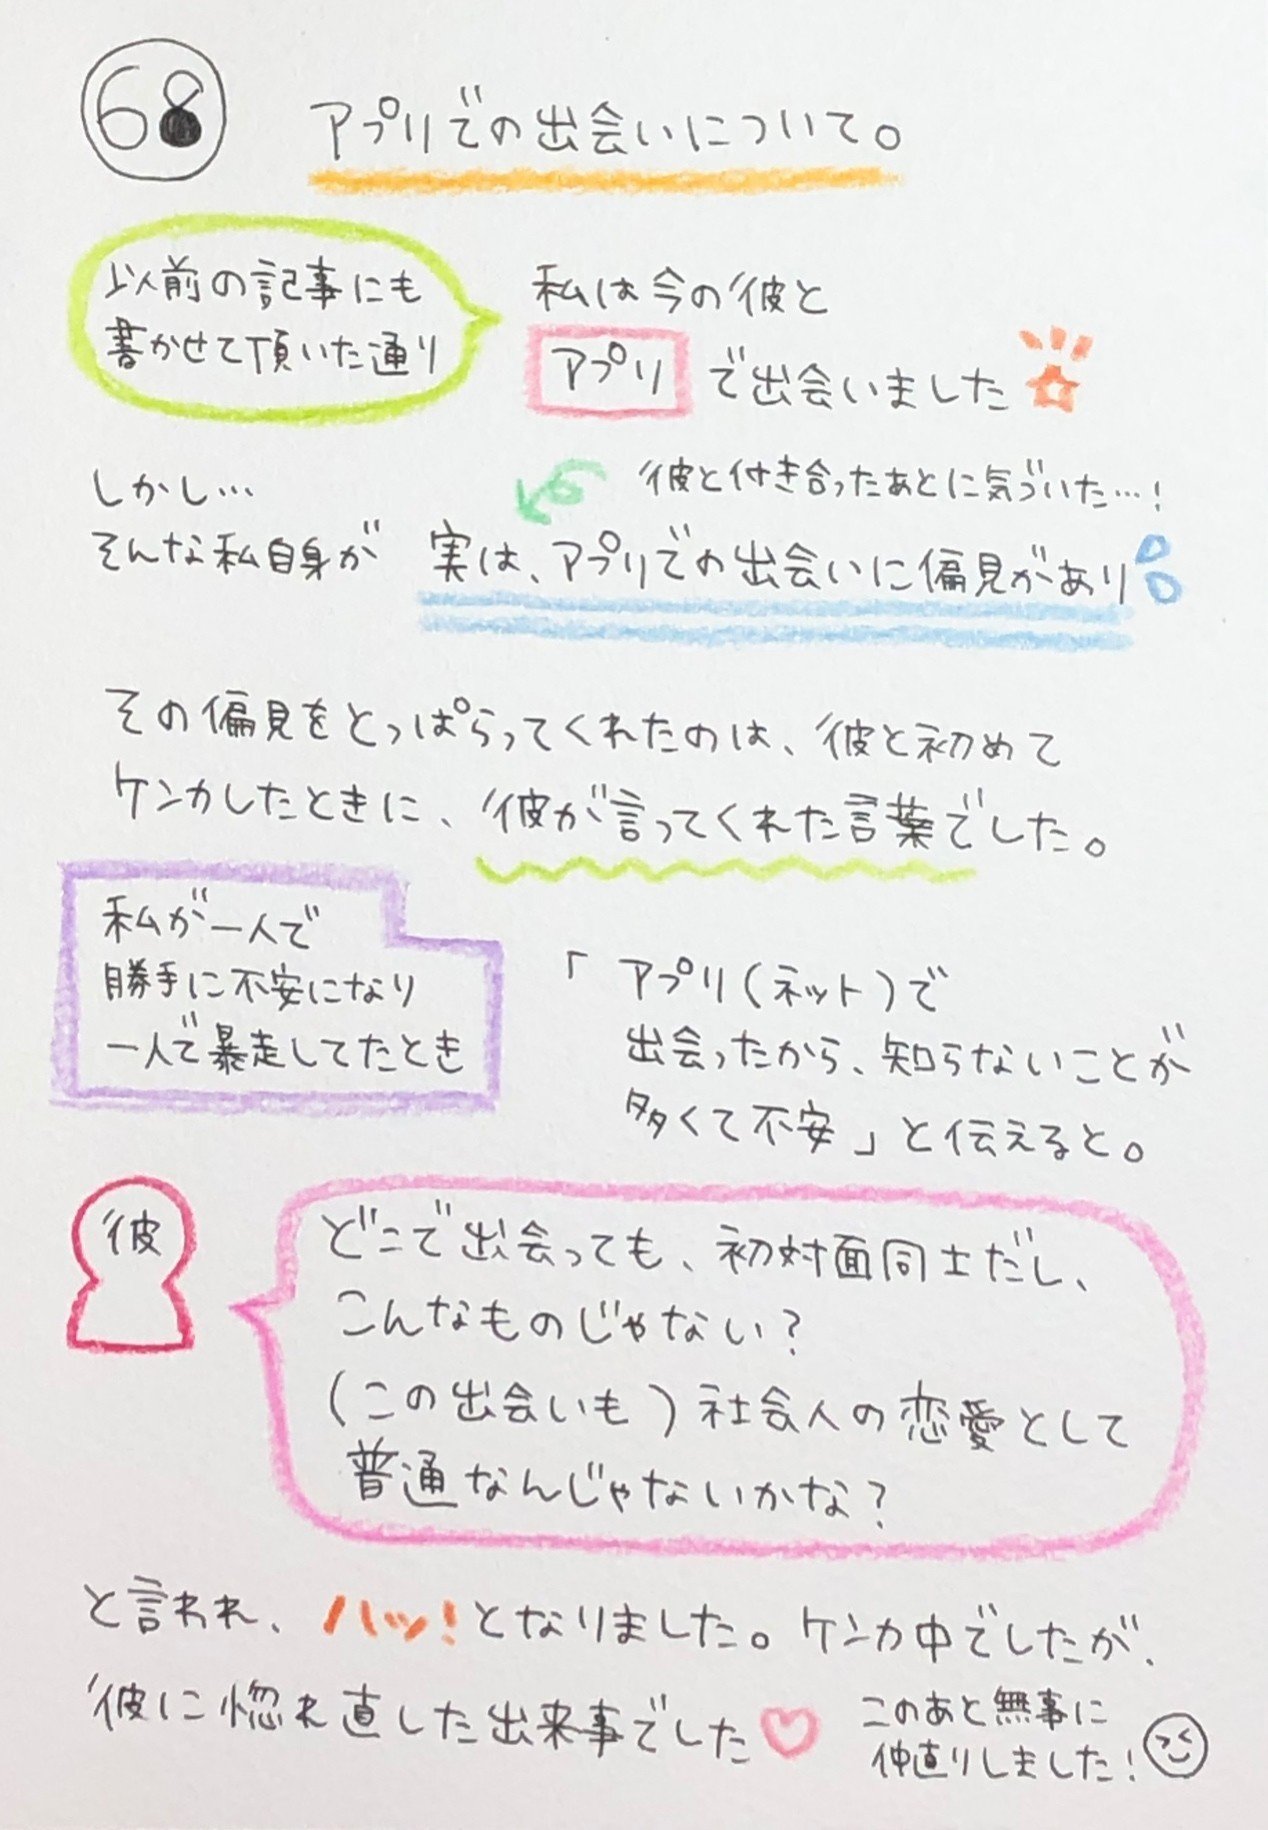 68
アプリでの出会いについて。
以前の記事にも
書かせて頂いた通り
私は今の彼と
アプリで出会いました
しかし…
彼と付き合ったあとに気づいた…！
そんな私自身が 実は、アプリでの出会いに偏見があり
その偏見をとっぱらってくれたのは、彼と初めて
ケンカしたときに、彼が言ってくれた言葉でした。
私が一人で
勝手に不安になり
一人で暴走してたとき
「アプリ(ネット)で
出会ったから、知らないことが
多くて不安」と伝えると。
彼
どこで出会っても、初対面同士だし、
こんなものじゃない？
(この出会いも)社会人の恋愛として
普通なんじゃないかな？
と言われ、ハッ！となりました。ケンカ中でしたが、
彼に惚れ直した出来事でした
このあと無事に
仲直りしました！